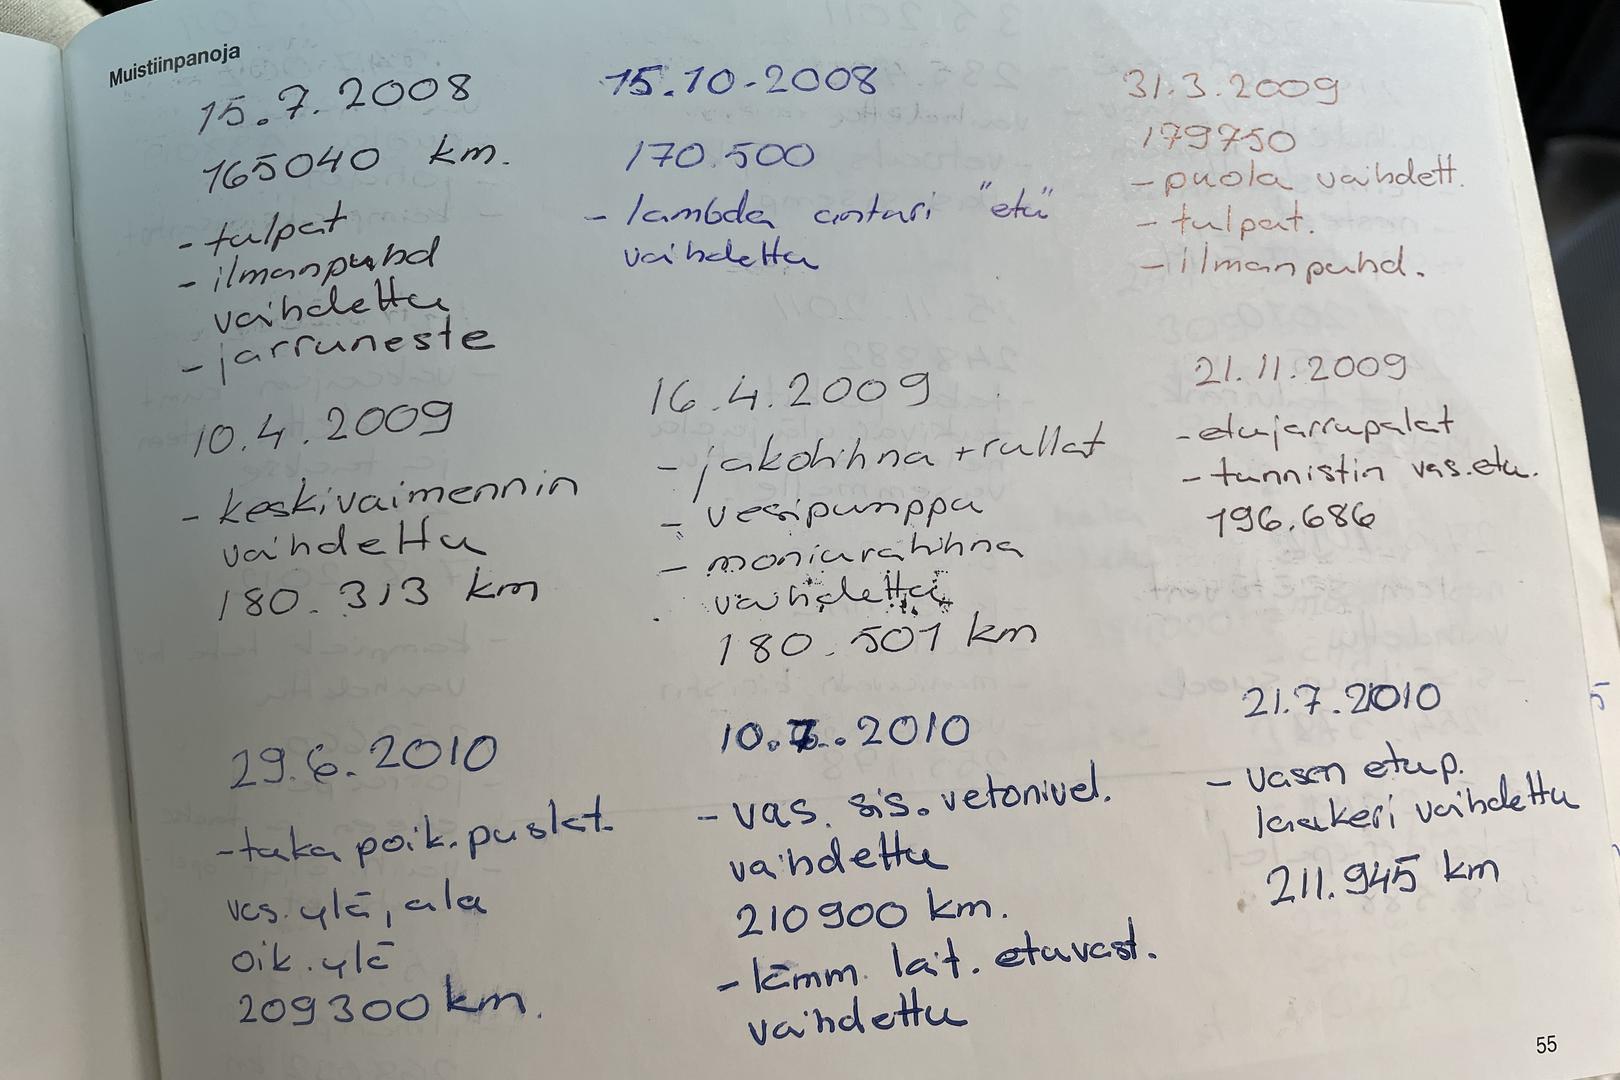 Muistiinpanoja
15.7.2008
165040 km.
- tulpat
- ilmanpuhd
vaihdettu
- jarruneste
15.10-2008
170.500
- lambda anturi "etu"
vaihdettu
31.3.2009
179750
- puola vaihdett.
- tulpat.
- ilmanpuhd.
10.4.2009
- keskivaimennin
vaihdettu
180.313 km
16.4.2009
- jakohihna + rullat
- vesipumppu
- moniurahihna
vaihdettu
180.501 km
21.11.2009
- etujarrupalat
- tunnistin vas.etu.
196.686
29.6.2010
- taka poik.puslat.
vas. ylä, ala
oik. ylä
209300 km.
10.7.2010
- vas. sis. vetonivel.
vaihdettu
210900 km.
- lämm. lait. etuvast.
vaihdettu
21.7.2010
- vasen etup.
laakeri vaihdettu
211.945 km
55